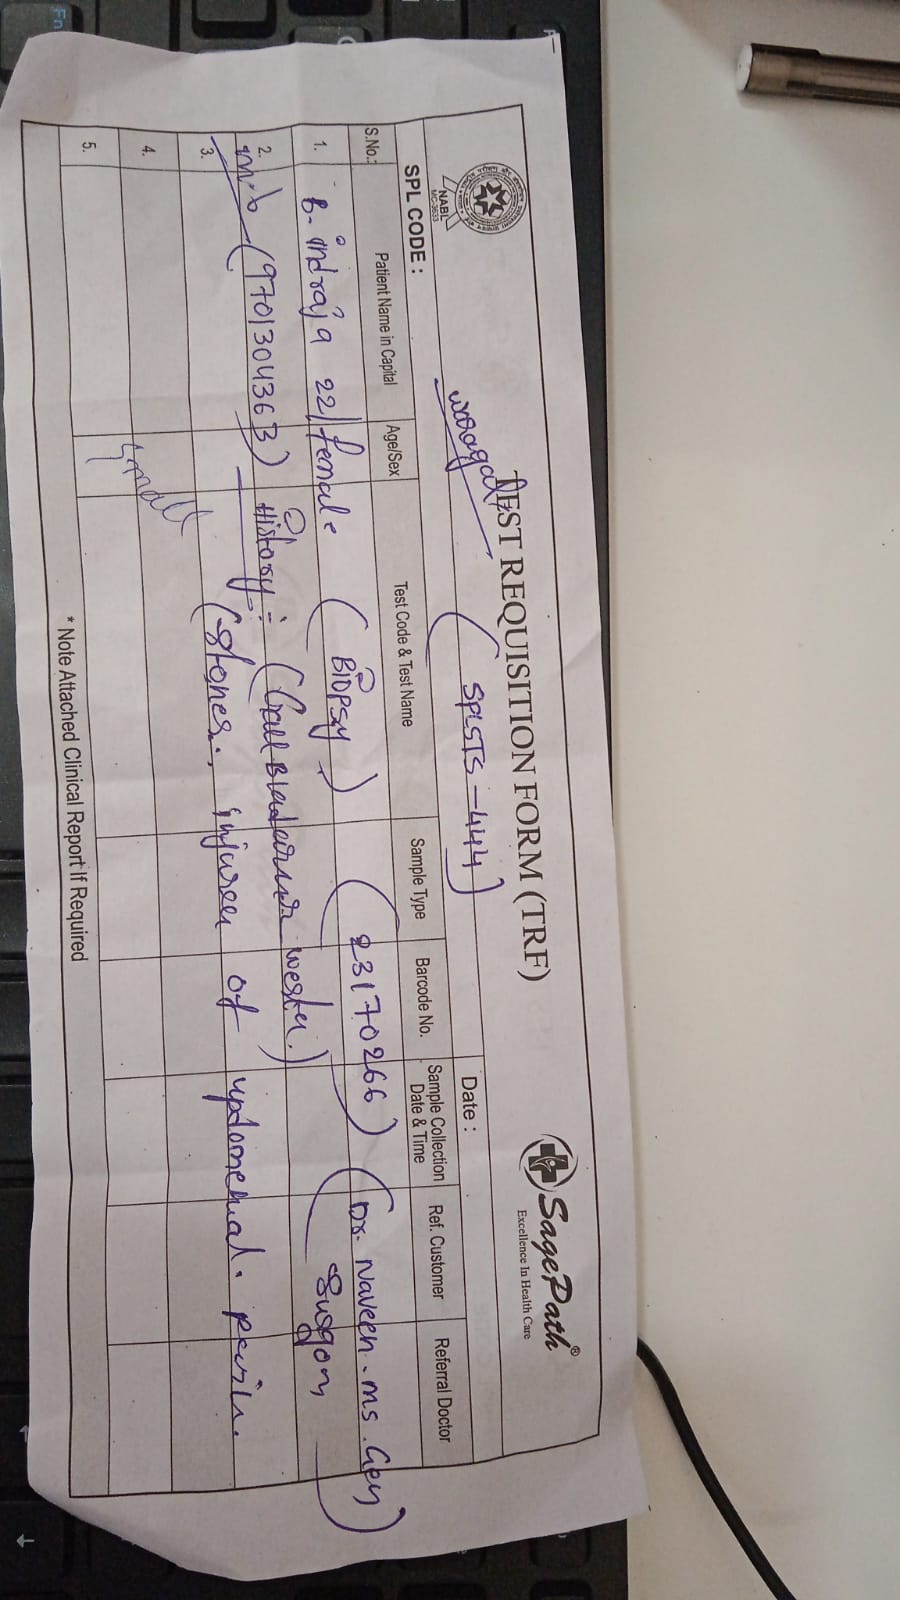 TEST REQUISITION FORM (TRF)
NABL
MC-3633
SagePath®
Excellence In Health Care
waragal
SPL CODE :
( SPLSTS - 444 )
Date :
S.No.: Patient Name in Capital Age/Sex Test Code & Test Name Sample Type Barcode No. Sample Collection Date & Time Ref. Customer Referral Doctor
1. B. indraja 22/female ( Biopsy ) ( 23170266 ) ( Dr. Naveen. ms. Gen
Surgon )
2. m.b (9701304363) History:- (Gall Bladder
3. (stones., of
4. Small
5.
* Note Attached Clinical Report If Required
Fn